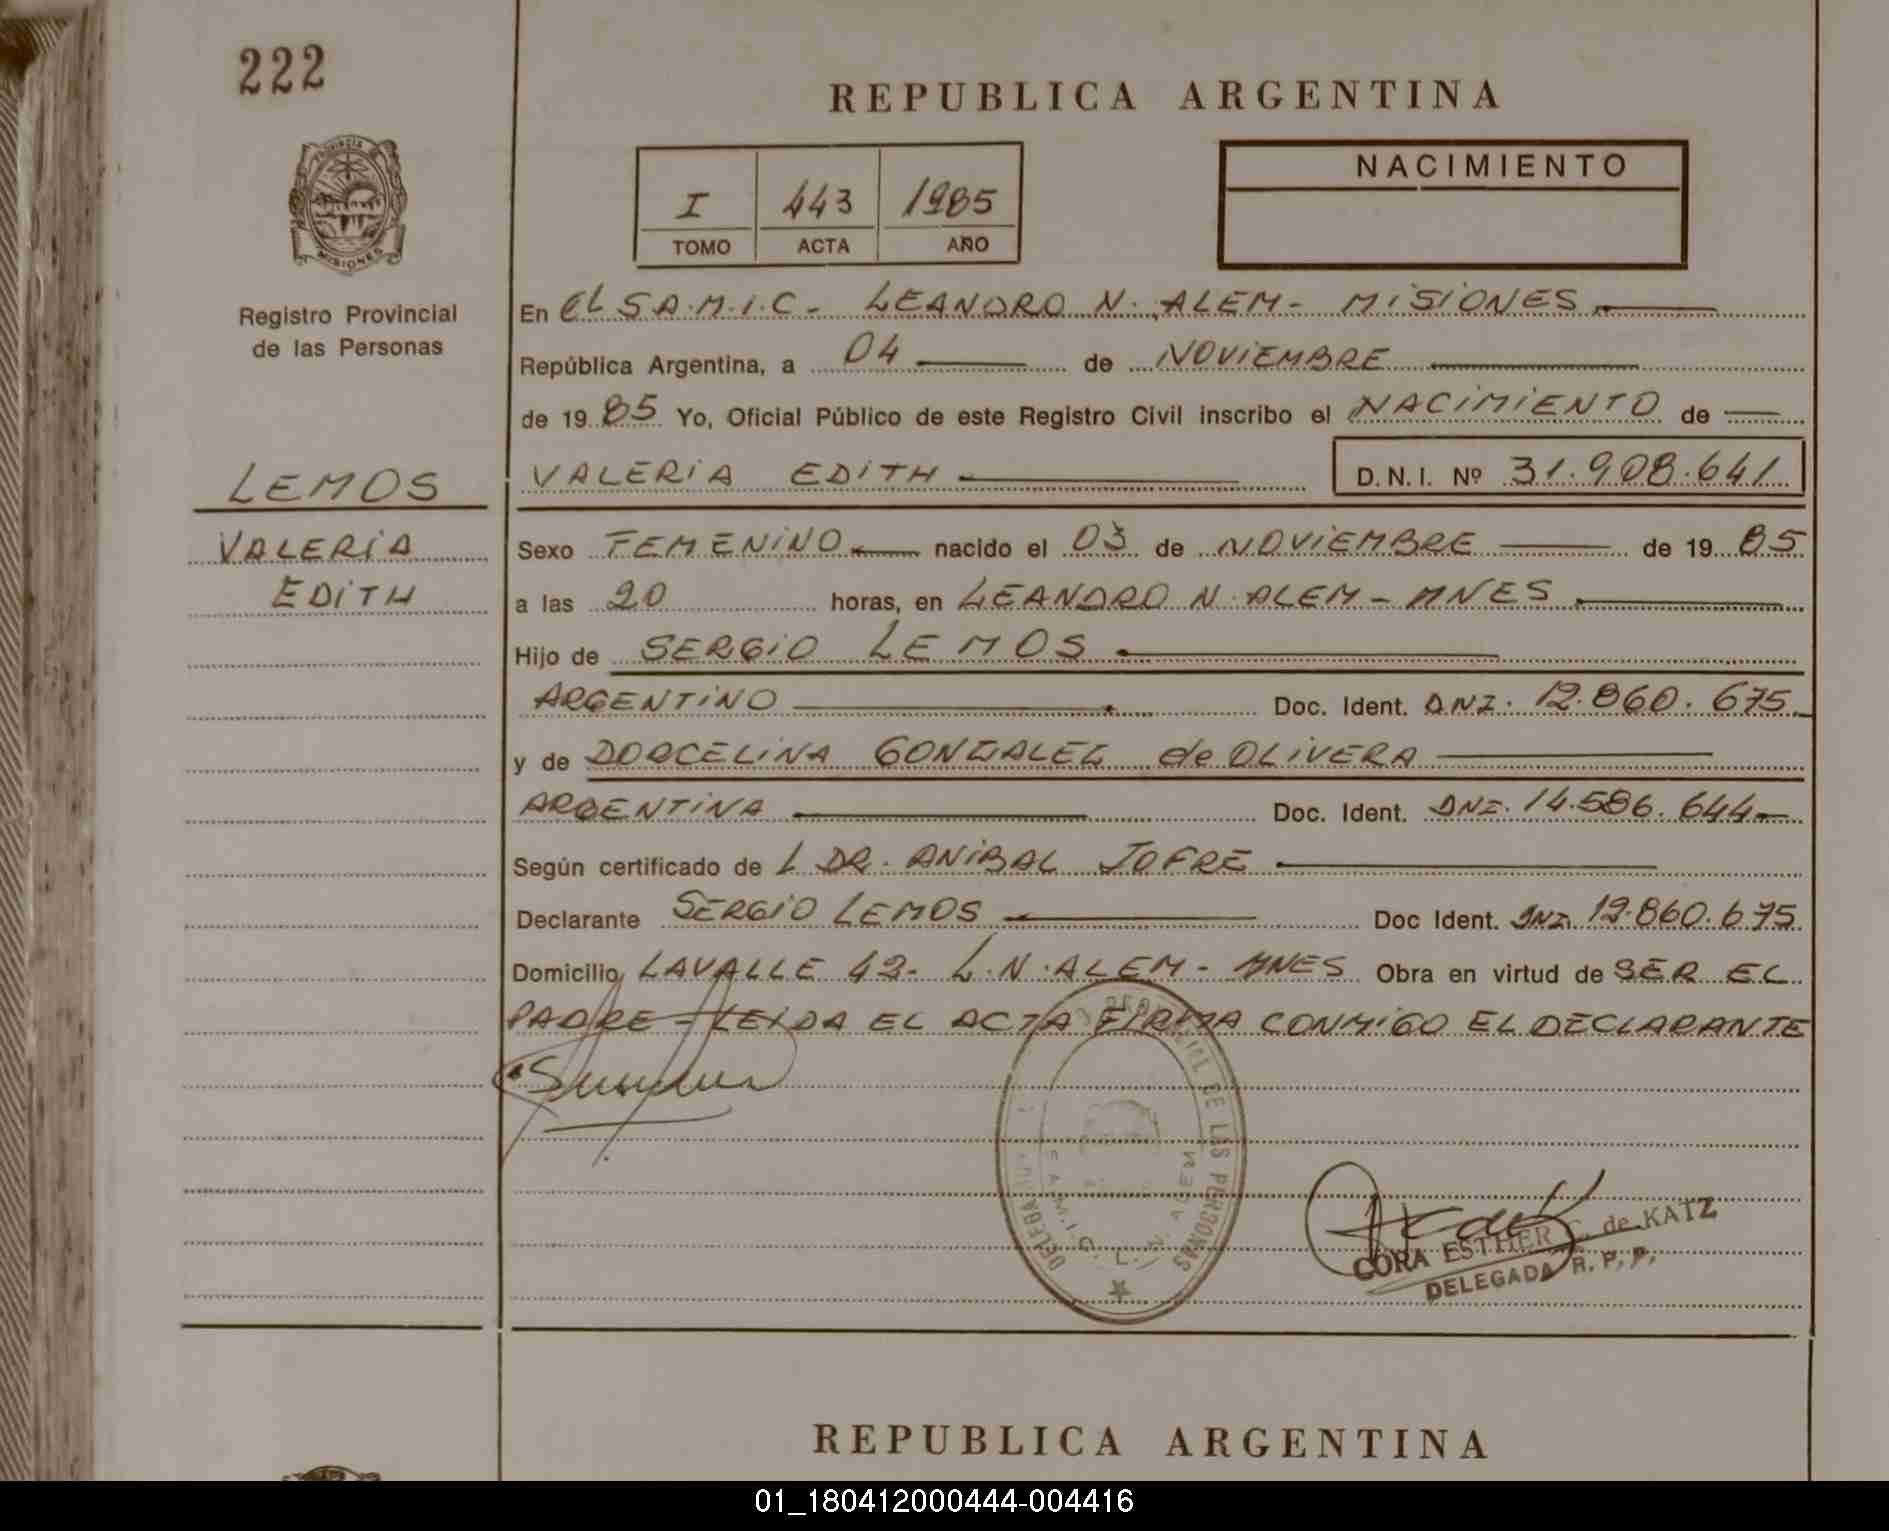 222
REPUBLICA ARGENTINA
PROVINCIA DE
MISIONES
Registro Provincial
de las Personas
I 443 1985
TOMO ACTA AÑO
NACIMIENTO
En EL S.A.M.I.C- LEANDRO N. ALEM- MISIONES
República Argentina, a 04 de NOVIEMBRE
de 19 85 Yo, Oficial Público de este Registro Civil inscribo el NACIMIENTO de
VALERIA EDITH D.N.I. Nº 31.908.641
LEMOS
VALERIA
EDITH
Sexo FEMENINO nacido el 03 de NOVIEMBRE de 19 85
a las 20 horas, en LEANDRO N. ALEM - MNES
Hijo de SERGIO LEMOS
ARGENTINO Doc. Ident. DNI. 12.860.675
y de DORCELINA GONZALEZ de OLIVERA
ARGENTINA Doc. Ident. DNI. 14.586.644
Según certificado de L DR. ANIBAL JOFRE
Declarante SERGIO LEMOS Doc Ident. DNI. 12.860.675
Domicilio LAVALLE 42- L.N. ALEM - MNES Obra en virtud de SER EL
PADRE - LEIDA EL ACTA FIRMA CONMIGO EL DECLARANTE
DE LAS PERSONAS
DELEGA
S.A.M.I.C. L. N. ALEM
CORA ESTHER C. de KATZ
DELEGADA R. P. P.
REPUBLICA ARGENTINA
01_180412000444-004416